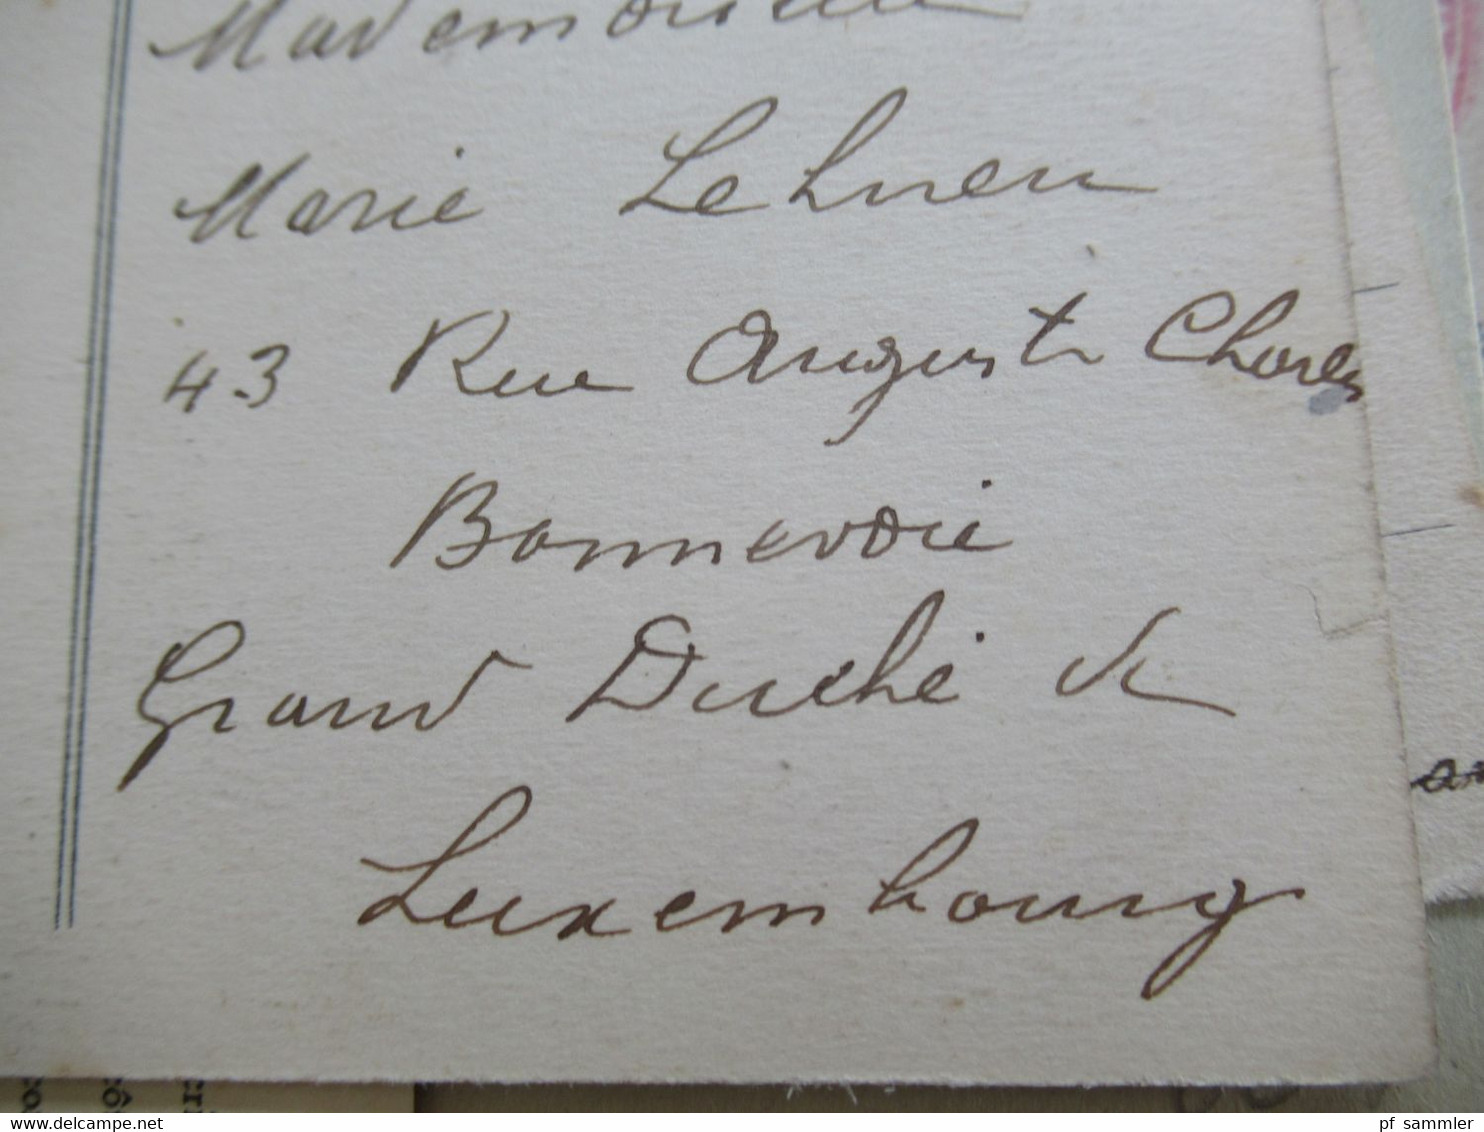 Mademoiselle
Marie Lehnen
43 Rue Auguste Charles
Bonnevoie
Grand Duché de
Luxembourg
pf sammler